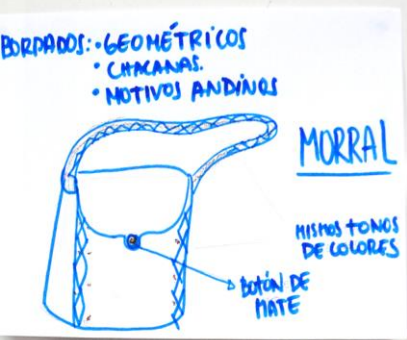 BORDADOS: • GEOMÉTRICOS
• CHACANAS.
• MOTIVOS ANDINOS
MORRAL
MISMOS TONOS
DE COLORES
BOTÓN DE
MATE